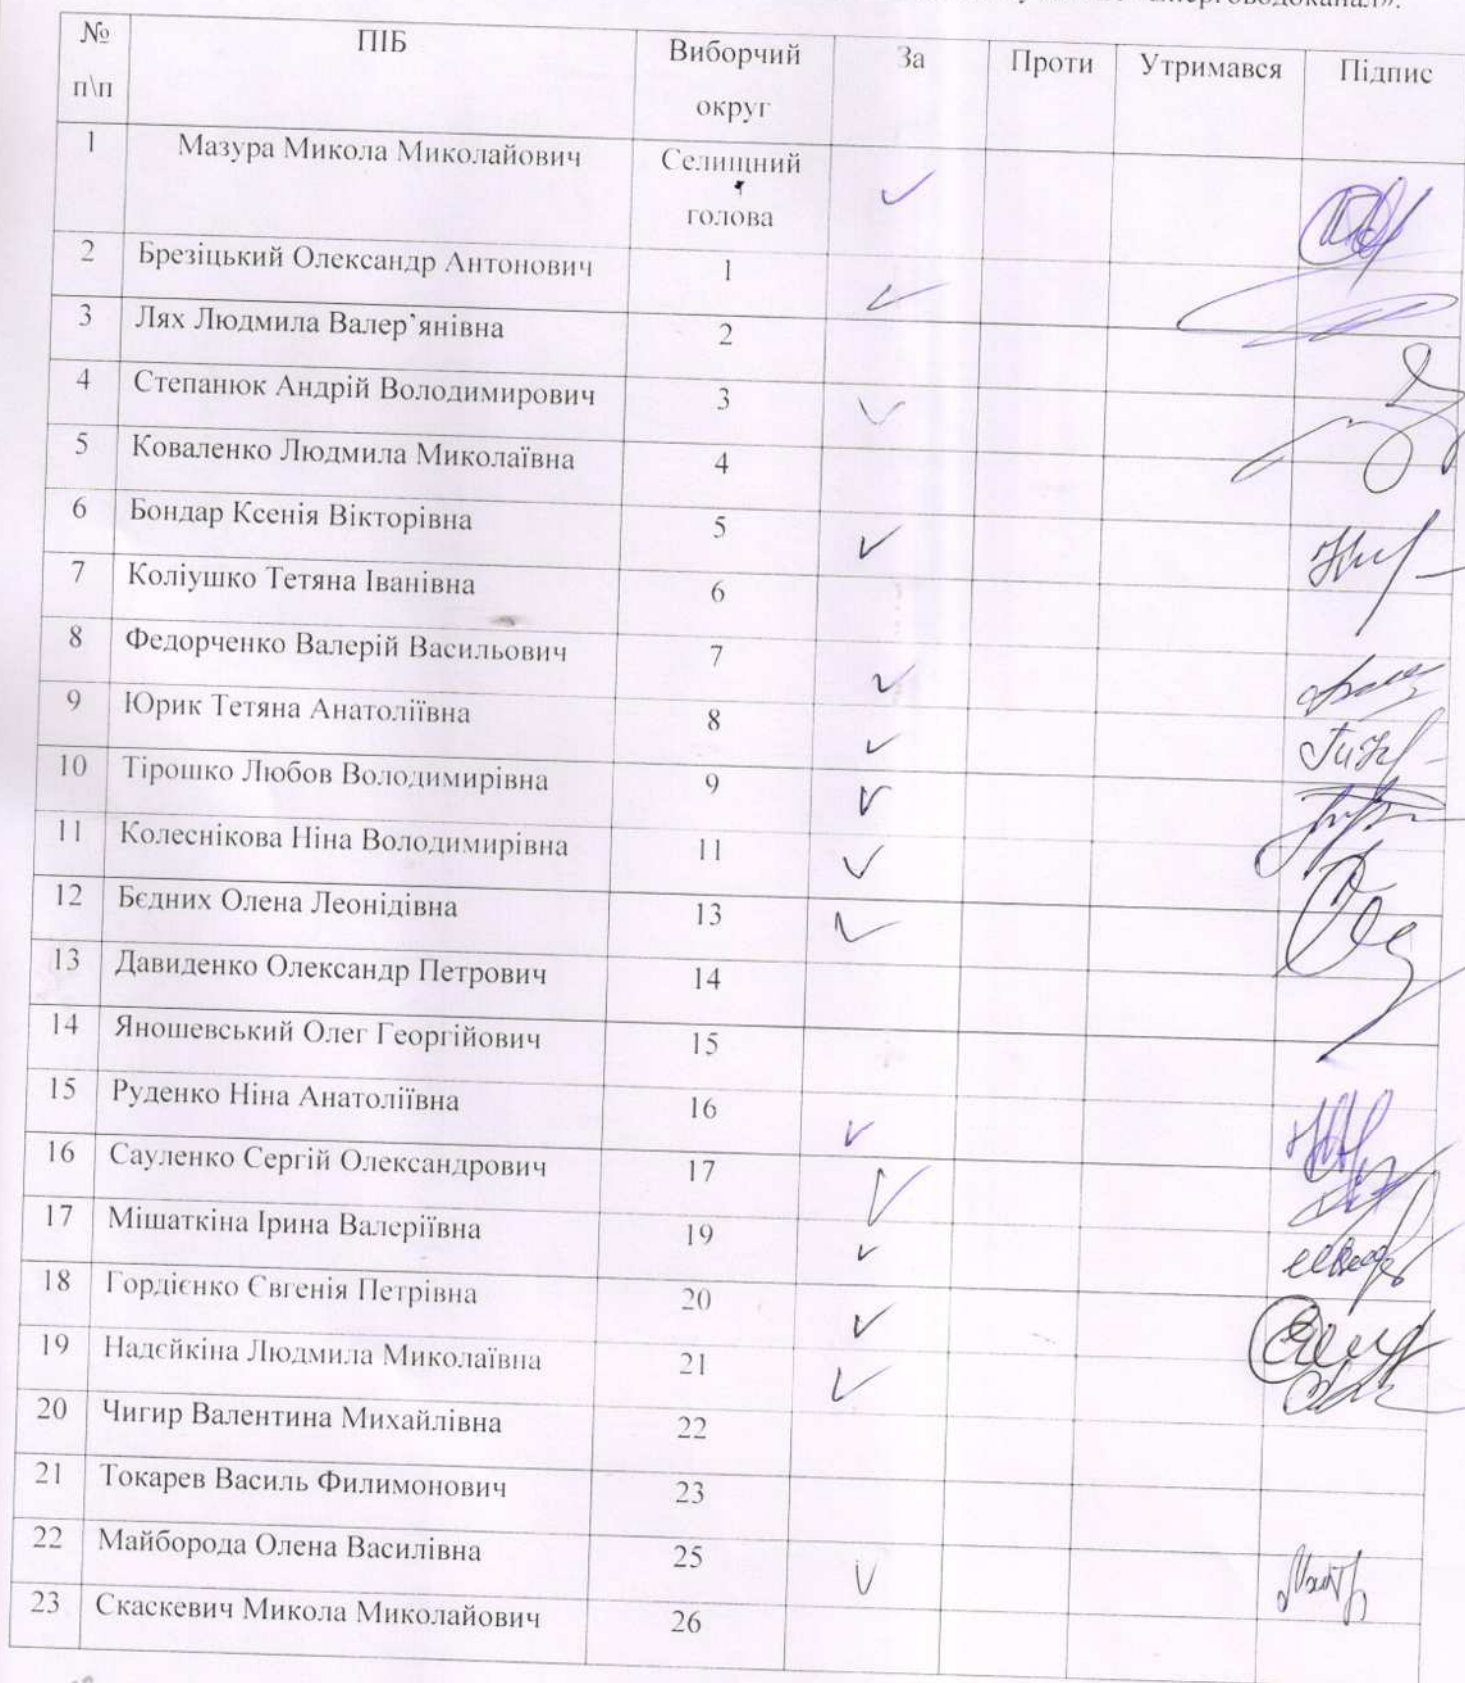 № п\п ПІБ Виборчий округ За Проти Утримався Підпис
1 Мазура Микола Миколайович Селищний голова ✓
2 Брезіцький Олександр Антонович 1 ✓
3 Лях Людмила Валер’янівна 2
4 Степанюк Андрій Володимирович 3 ✓
5 Коваленко Людмила Миколаївна 4
6 Бондар Ксенія Вікторівна 5 ✓
7 Коліушко Тетяна Іванівна 6
8 Федорченко Валерій Васильович 7 ✓
9 Юрик Тетяна Анатоліївна 8 ✓
10 Тірошко Любов Володимирівна 9 ✓
11 Колеснікова Ніна Володимирівна 11 ✓
12 Бєдних Олена Леонідівна 13 ✓
13 Давиденко Олександр Петрович 14
14 Яношевський Олег Георгійович 15
15 Руденко Ніна Анатоліївна 16 ✓
16 Сауленко Сергій Олександрович 17 ✓
17 Мішаткіна Ірина Валеріївна 19 ✓
18 Гордієнко Євгенія Петрівна 20 ✓
19 Надєйкіна Людмила Миколаївна 21 ✓
20 Чигир Валентина Михайлівна 22
21 Токарев Василь Филимонович 23
22 Майборода Олена Василівна 25 ✓
23 Скаскевич Микола Миколайович 26